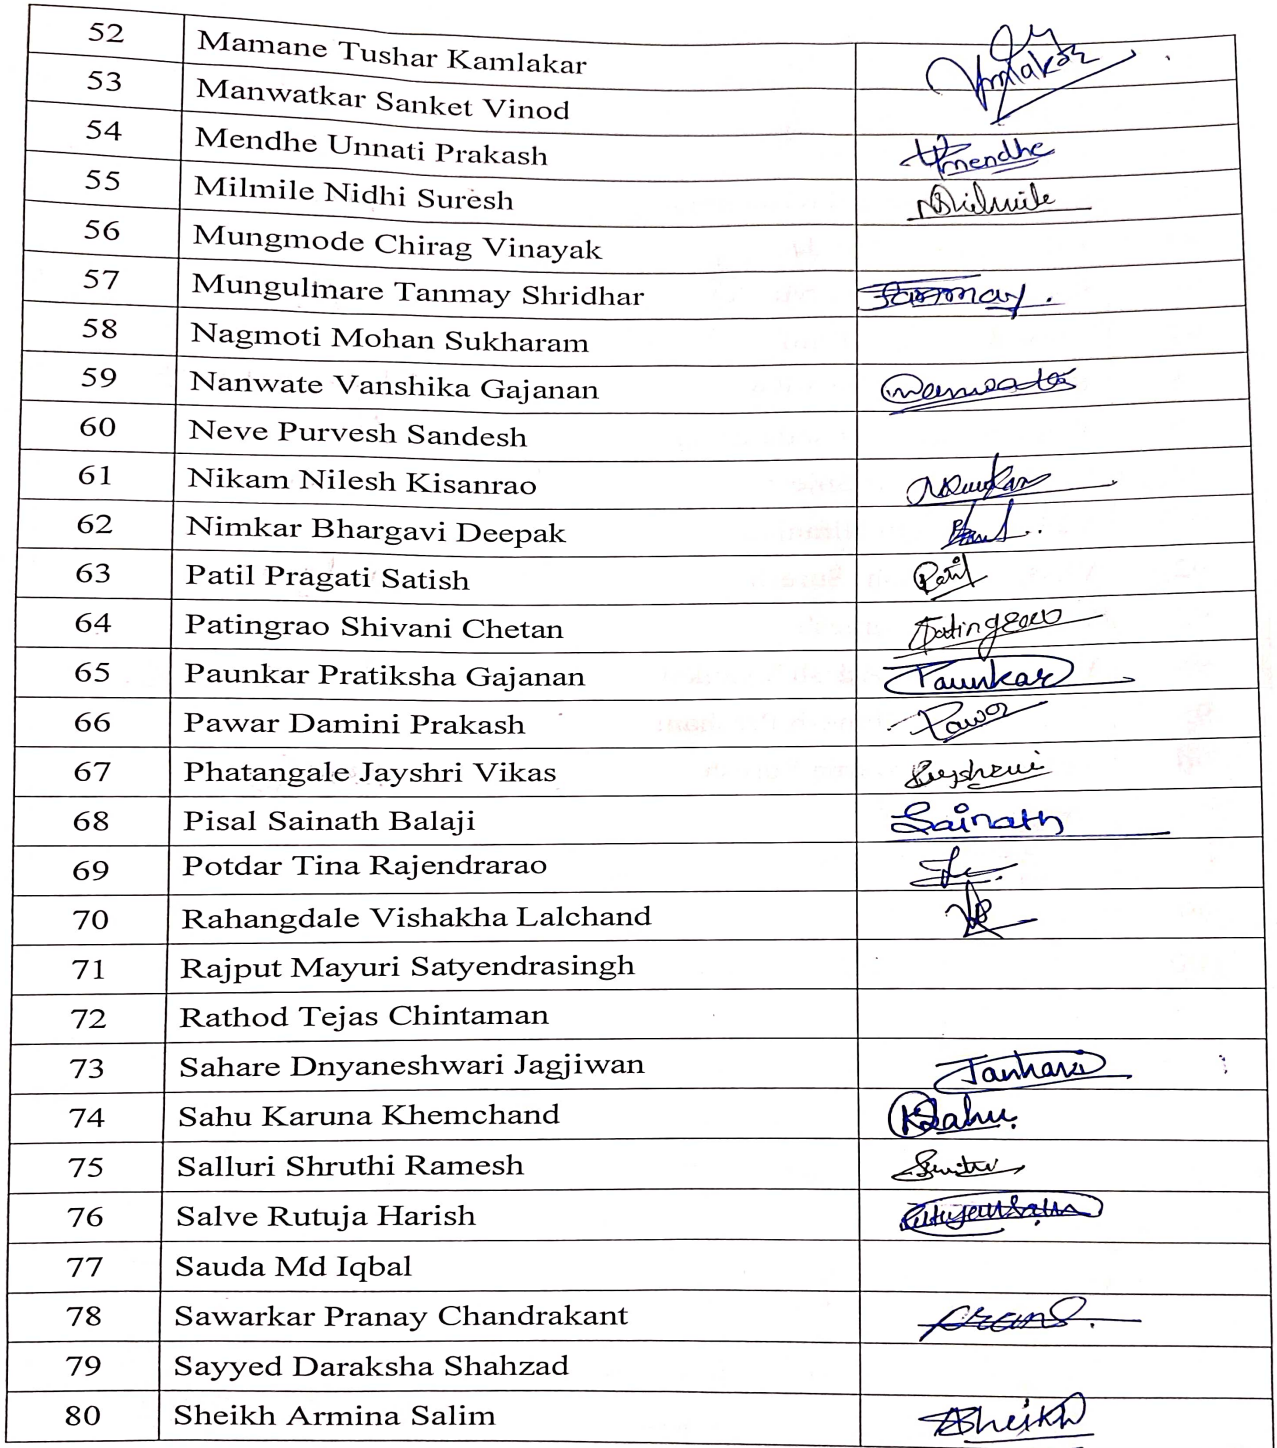 52 Mamane Tushar Kamlakar
53 Manwatkar Sanket Vinod
54 Mendhe Unnati Prakash mendhe
55 Milmile Nidhi Suresh
56 Mungmode Chirag Vinayak
57 Mungulmare Tanmay Shridhar
58 Nagmoti Mohan Sukharam
59 Nanwate Vanshika Gajanan
60 Neve Purvesh Sandesh
61 Nikam Nilesh Kisanrao
62 Nimkar Bhargavi Deepak
63 Patil Pragati Satish Patil
64 Patingrao Shivani Chetan
65 Paunkar Pratiksha Gajanan Paunkar
66 Pawar Damini Prakash
67 Phatangale Jayshri Vikas
68 Pisal Sainath Balaji Sainath
69 Potdar Tina Rajendrarao
70 Rahangdale Vishakha Lalchand
71 Rajput Mayuri Satyendrasingh
72 Rathod Tejas Chintaman
73 Sahare Dnyaneshwari Jagjiwan
74 Sahu Karuna Khemchand KSahu.
75 Salluri Shruthi Ramesh
76 Salve Rutuja Harish
77 Sauda Md Iqbal
78 Sawarkar Pranay Chandrakant
79 Sayyed Daraksha Shahzad
80 Sheikh Armina Salim ASheikh